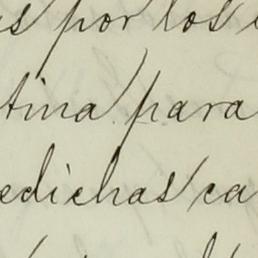 s por los
tina para
edichas ca